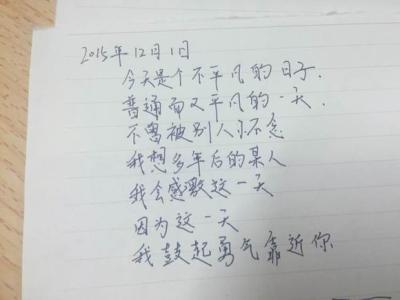 2015年12月1日
今天是个不平凡的日子.
普通而又平凡的一天.
不曾被别人怀念
我想多年后的某人
我会感激这一天
因为这一天
我鼓起勇气靠近你